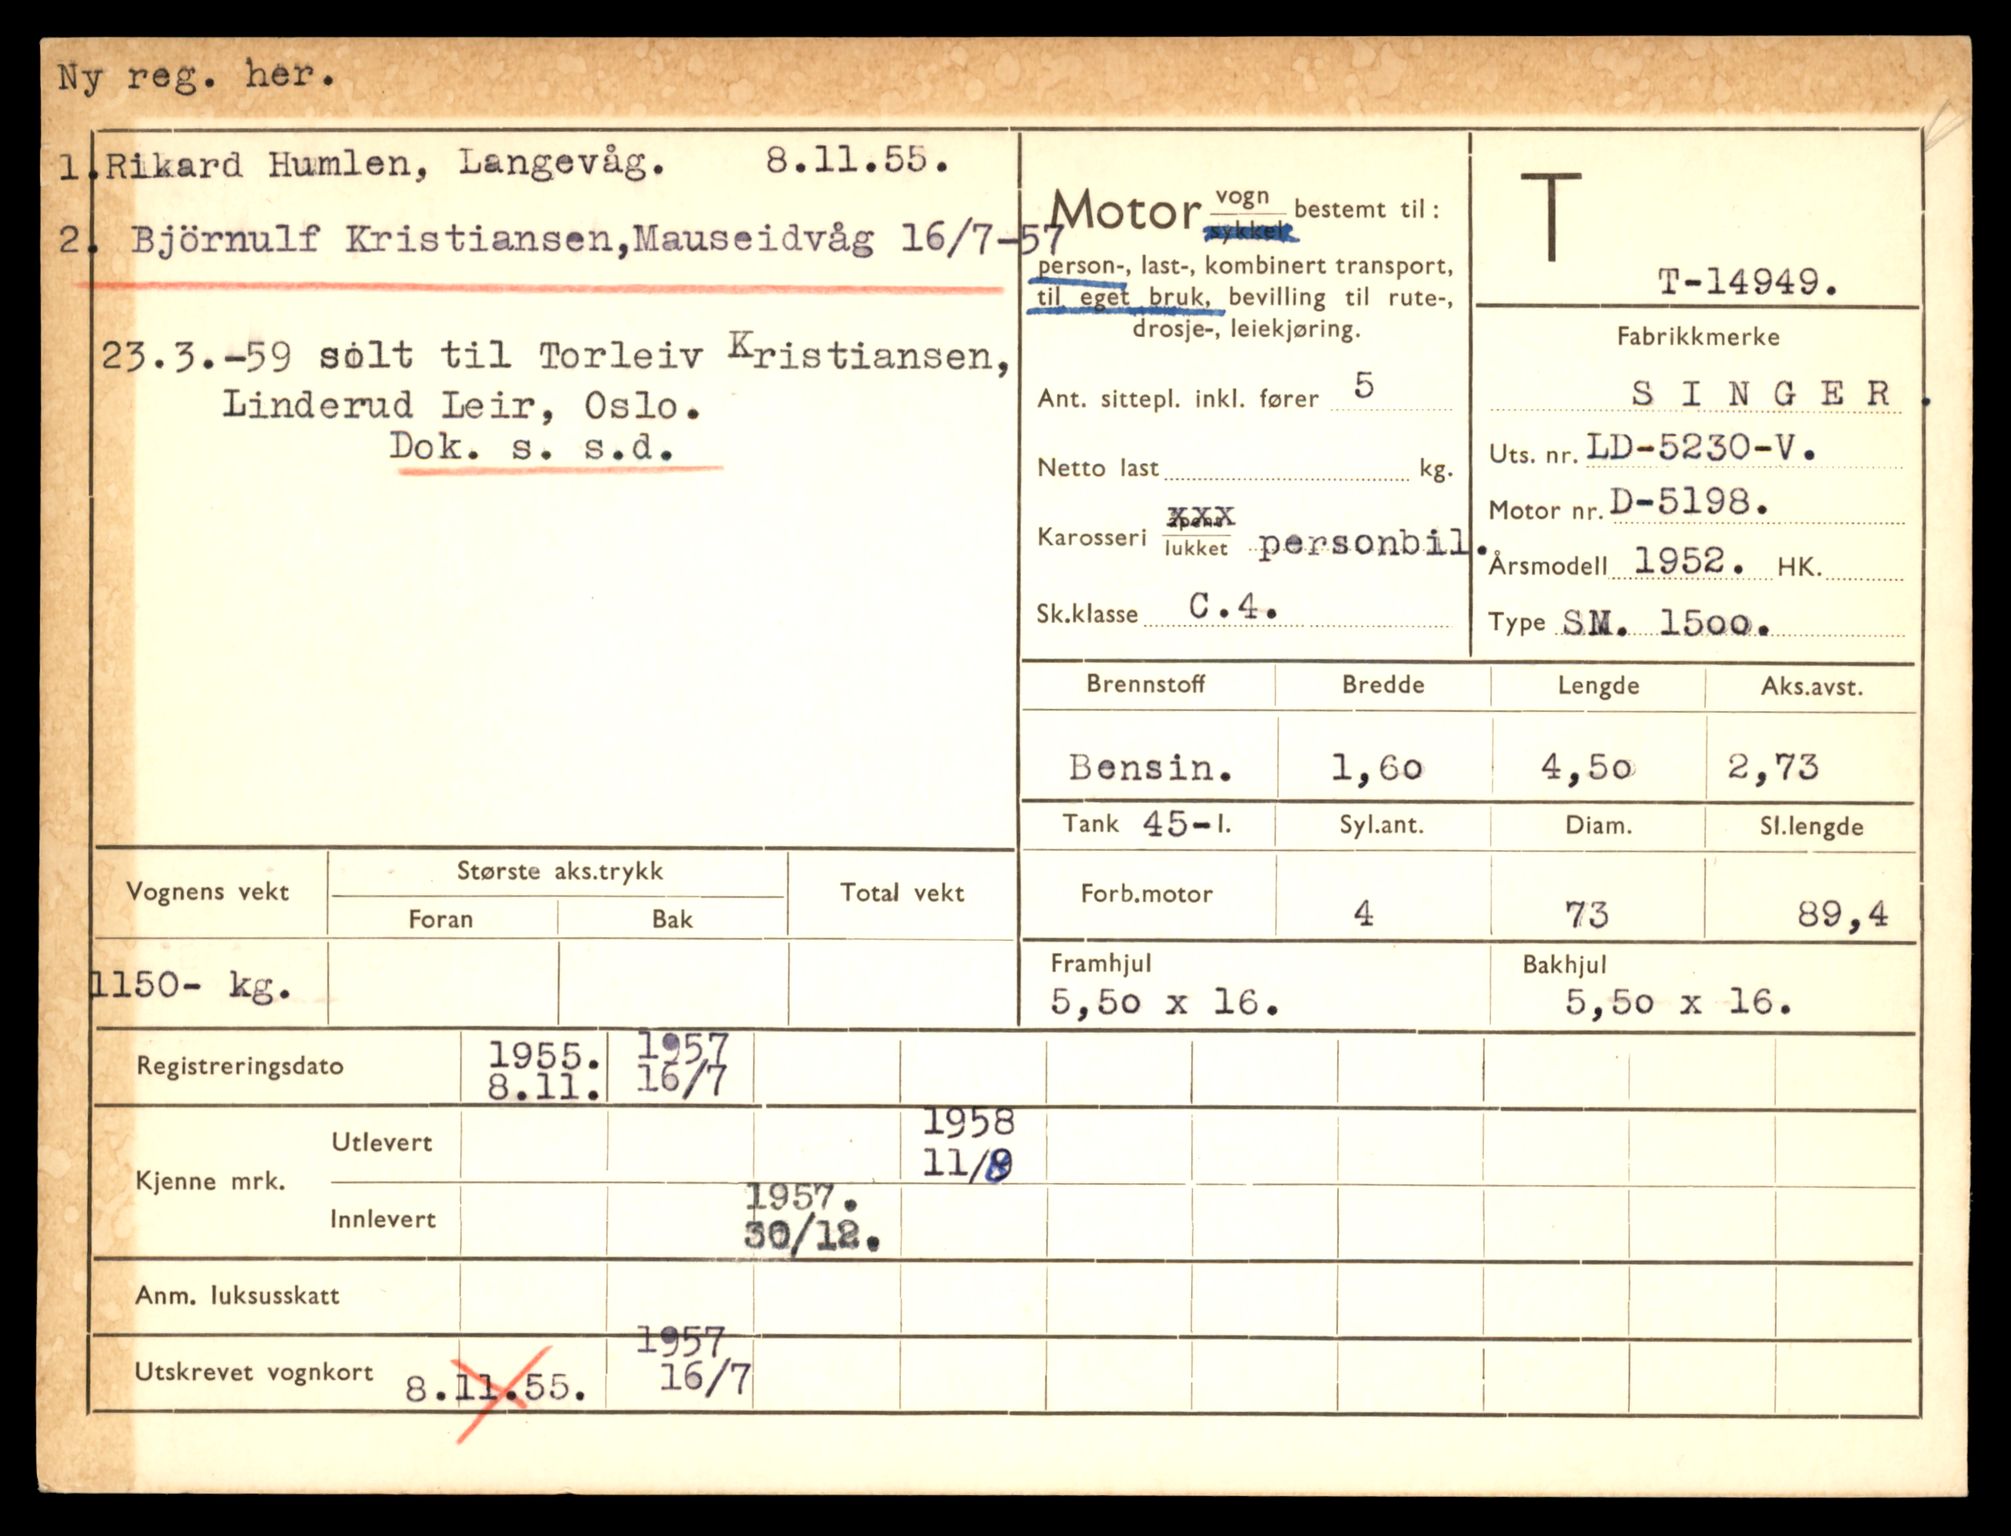 Ny reg. her.
1. Rikard Humlen, Langevåg. 8.11.55.
2. Björnulf Kristiansen, Mauseidvåg 16/7-57
23.3.-59 solt til Torleiv Kristiansen,
Linderud Leir, Oslo.
Dok. s. s.d.
Motor vogn bestemt til:
sykkel
person-, last-, kombinert transport,
til eget bruk, bevilling til rute-,
drosje-, leiekjøring.
Ant. sittepl. inkl. fører 5
Netto last kg.
Karosseri åpent xxx
lukket personbil.
Sk.klasse C.4.
T
T-14949.
Fabrikkmerke
SINGER.
Uts. nr. LD-5230-V.
Motor nr. D-5198.
Årsmodell 1952. HK.
Type SM. 1500.
Brennstoff Bredde Lengde Aks.avst.
Bensin. 1,60 4,50 2,73
Tank 45-l. Syl.ant. Diam. Sl.lengde
Forb.motor 4 73 89,4
Framhjul Bakhjul
5,50 x 16. 5,50 x 16.
Vognens vekt Største aks.trykk Total vekt
Foran Bak
1150- kg.
Registreringsdato 1955. 1957
8.11. 16/7
Kjenne mrk.
Utlevert 1958
11/8
Innlevert 1957.
30/12.
Anm. luksusskatt
Utskrevet vognkort 8.11.55. 1957
16/7